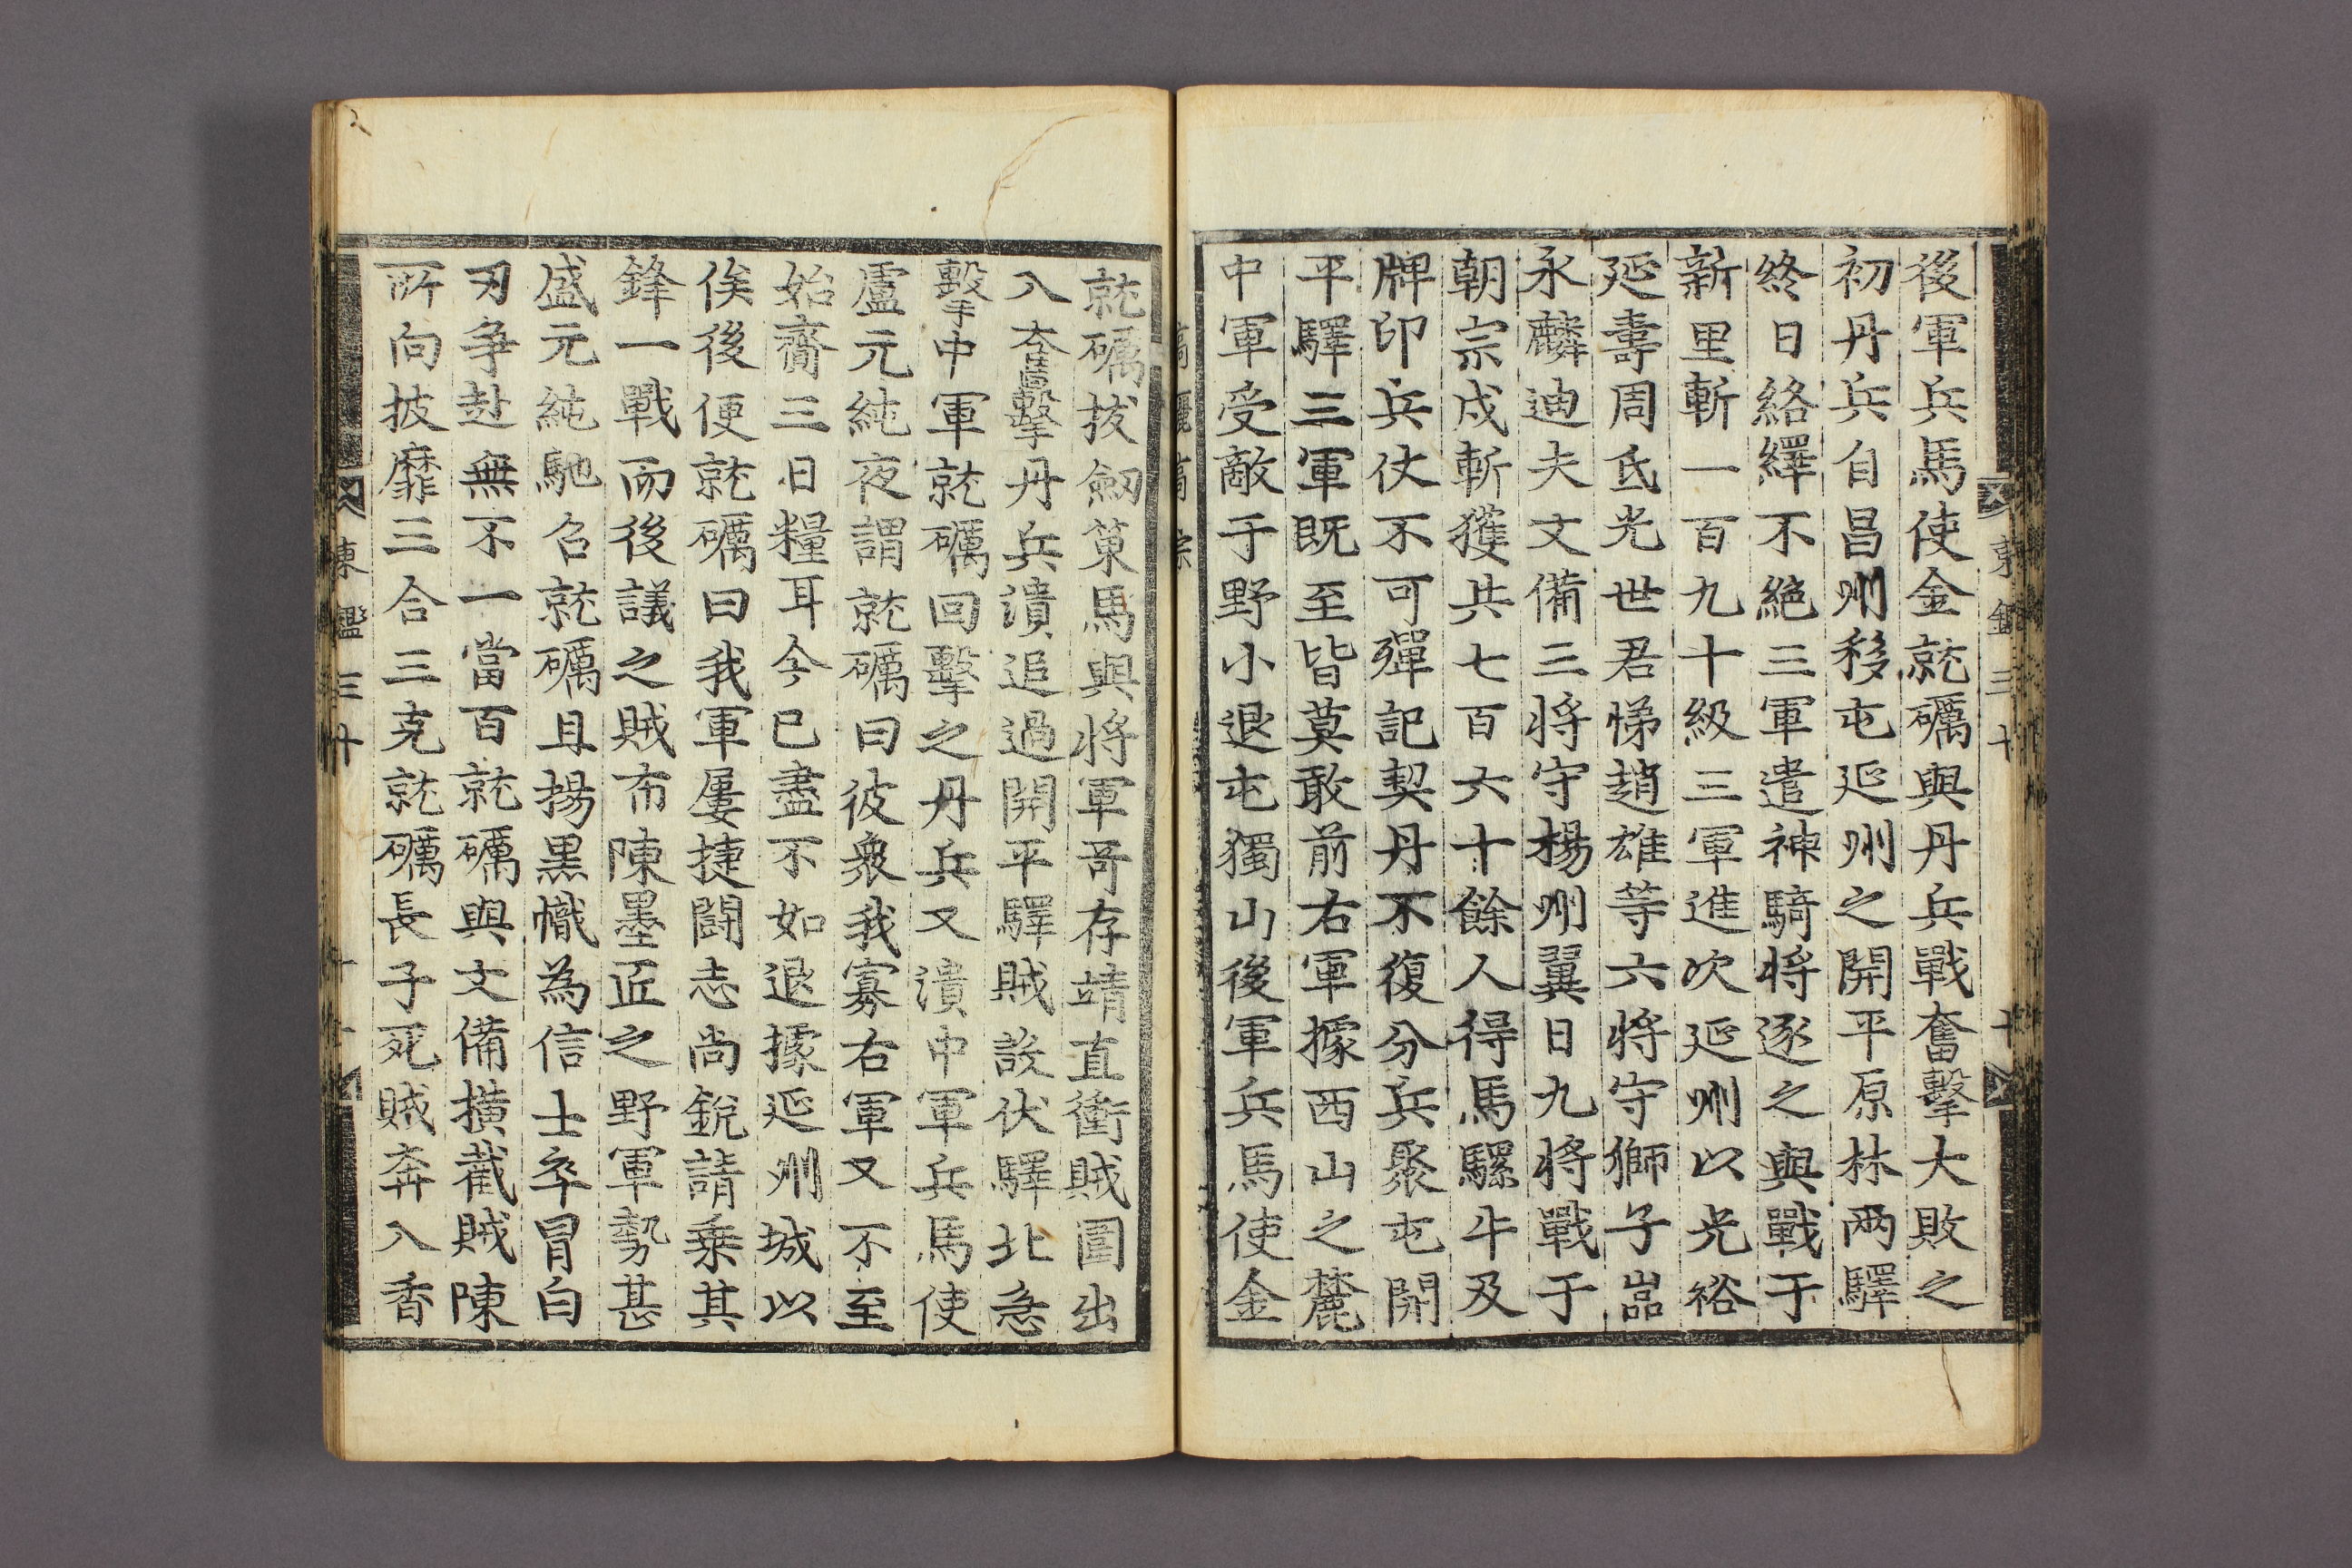 後軍兵馬使金就礪與丹兵戰奮擊大敗之
初丹兵自昌州移屯延州之開平原林兩驛
終日絡繹不絶三軍遣神騎將逐之與戰于
新里斬一百九十級三軍進次延州以光裕
延壽周氐光世君悌趙雄等六將守獅子嵓
永麟迪夫文備三將守楊州翼日九將戰于
朝宗戍斬獲共七百六十餘人得馬騾牛及
牌印兵仗不可彈記契丹不復分兵聚屯開
平驛三軍既至皆莫敢前右軍據西山之麓
中軍受敵于野小退屯獨山後軍兵馬使金
就礪拔劒策馬與將軍奇存靖直衝賊圍出
入奮擊丹兵潰追過開平驛賊設伏驛北急
擊中軍就礪回擊之丹兵又潰中軍兵馬使
盧元純夜謂就礪曰彼衆我寡右軍又不至
始齎三日糧耳今已盡不如退據延州城以
俟後便就礪曰我軍屢捷鬪志尚銳請乗其
鋒一戰而後議之賊布陳墨匠之野軍勢甚
盛元純馳召就礪且揚黑幟為信士卒冒白
刃爭赴無不一當百就礪與文備横截賊陳
所向披靡三合三克就礪長子死賊奔入香
東鑑三十
十
東鑑三十
十一